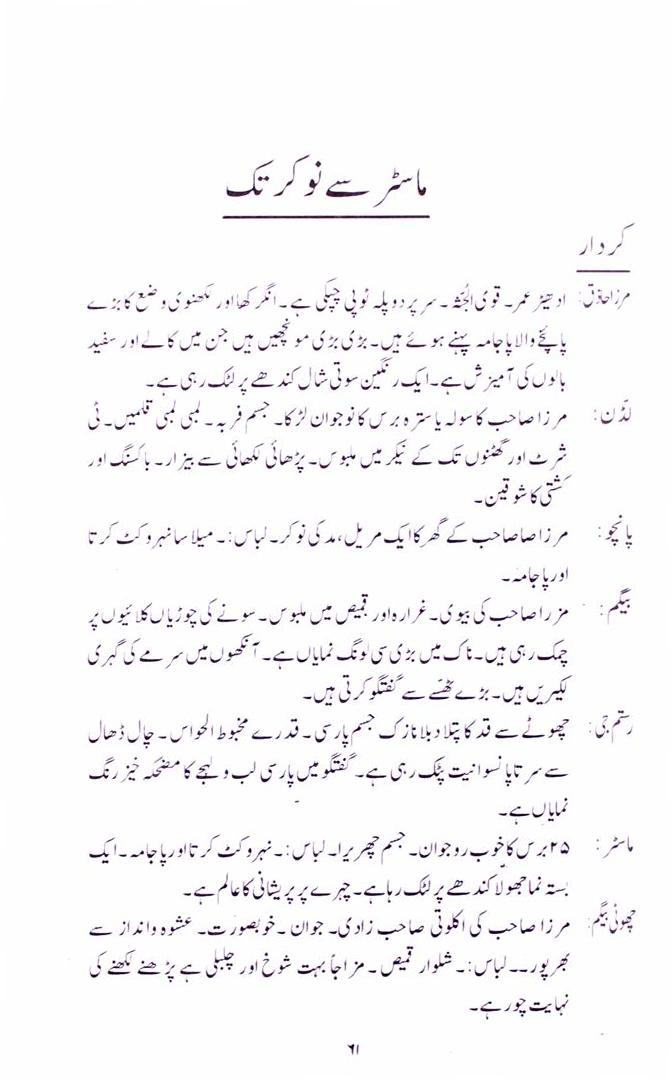 ماسٹر سے نوکر تک
کردار
مرزا حاذق: ادھیڑ عمر۔ قوی الجُثہ۔ سر پر دو پلہ ٹوپی چپکی ہے۔ انگرکھا اور لکھنوی وضع کا بڑے
پائنچے والا پاجامہ پہنے ہوئے ہیں۔ بڑی بڑی مونچھیں ہیں جن میں کالے اور سفید
بالوں کی آمیزش ہے۔ ایک رنگین سوتی شال کندھے پر لٹک رہی ہے۔
لڈّن: مرزا صاحب کا سولہ یا سترہ برس کا نوجوان لڑکا۔ جسم فربہ۔ لمبی لمبی قلمیں۔ ٹی
شرٹ اور گھٹنوں تک کے نیکر میں ملبوس۔ پڑھائی لکھائی سے بیزار۔ باکسنگ اور
کشتی کا شوقین۔
پانچو: مرزا صاصاحب کے گھر کا ایک مریل، مدکی نوکر۔ لباس:۔ میلا سا نہرو کٹ کرتا
اور پاجامہ۔
بیگم: مزرا صاحب کی بیوی۔ غرارہ اور قمیص میں ملبوس۔ سونے کی چوڑیاں کلائیوں پر
چمک رہی ہیں۔ ناک میں بڑی سی لونگ نمایاں ہے۔ آنکھوں میں سرمے کی گہری
لکیریں ہیں۔ بڑے ٹھسّے سے گفتگو کرتی ہیں۔
رستم جی: چھوٹے سے قد کا پتلا دبلا نازک جسم پارسی۔ قدرے مخبوط الحواس۔ چال ڈھال
سے سر تا پا نسوانیت ٹپک رہی ہے۔ گفتگو میں پارسی لب و لہجے کا مضحکہ خیز رنگ
نمایاں ہے۔
ماسٹر: ۲۵ برس کا خوب رو جوان۔ جسم چھریرا۔ لباس:۔ نہرو کٹ کرتا اور پاجامہ۔ ایک
بستہ نما جھولا کندھے پر لٹک رہا ہے۔ چہرے پر پریشانی کا عالم ہے۔
چھوٹی بیگم: مرزا صاحب کی اکلوتی صاحب زادی۔ جوان۔ خوبصورت۔ عشوہ و انداز سے
بھرپور۔۔ لباس:۔ شلوار قمیص۔ مزاجاً بہت شوخ اور چلبلی ہے پڑھنے لکھنے کی
نہایت چور ہے۔
۶۱